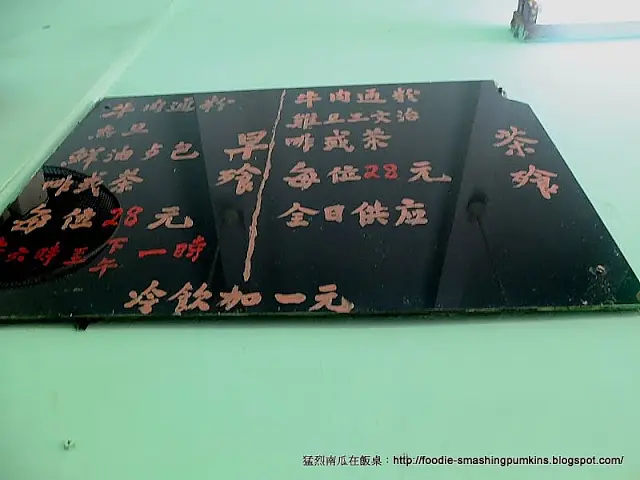 茶
歺
牛肉通粉
雞旦三文治
啡或茶
每位28元
全日供应
早
歺
牛肉通粉
煎旦
鮮油多包
啡或茶
每位28元
六時至下午一時
冷飲加一元
猛烈南瓜在飯桌：http://foodie-smashingpumkins.blogspot.com/